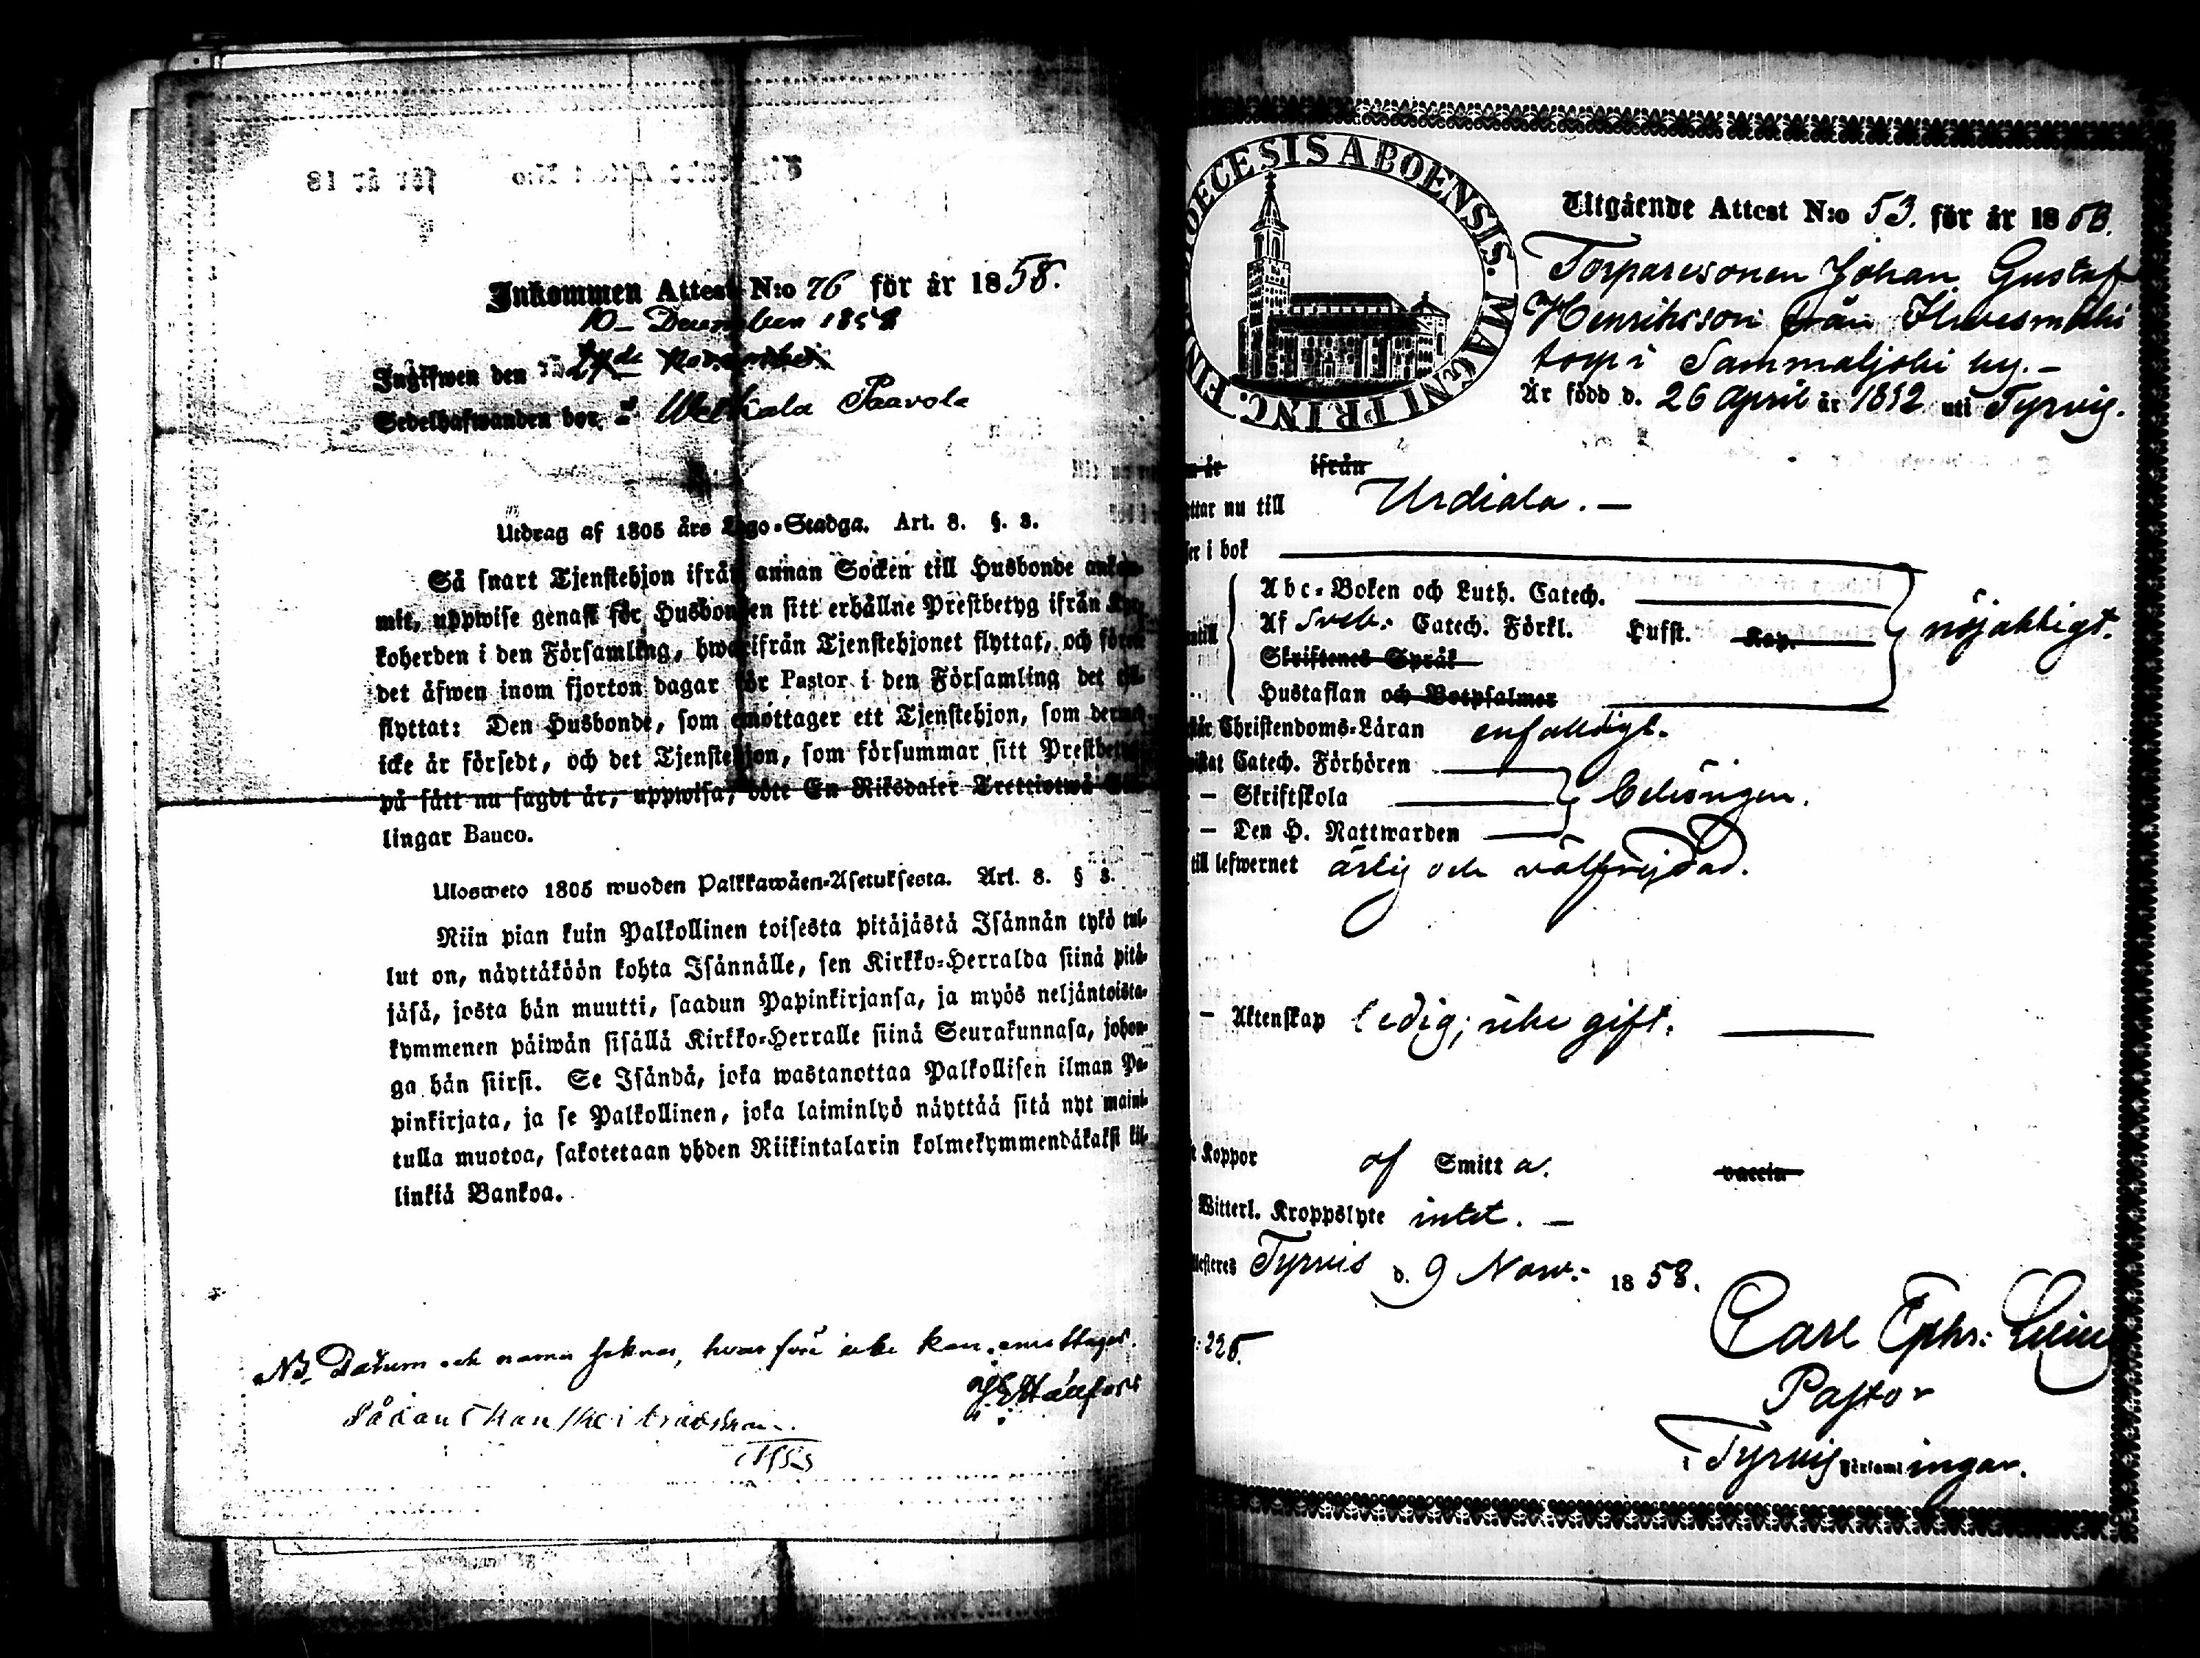 Inkommen Attest N:o 76 för år 1858.
10 December 1858
Ingifwen den
Sedelhafwanden bor i Paavola
Utdrag af 1805 års Lego-Stadga. Art. 8. §. 3.
Så snart Tjenstehjon ifrån annan Socken till Husbonde
mit, uppwise genast för Husbonden sitt erhållne Prestbetyg ifrån
koherden i den Församling, hwarifrån Tjenstehjonet flyttat, och
det äfwen inom fjorton dagar för Pastor i den Församling det
flyttat: Den Husbonde, som emottager ett Tjenstehjon, som
icke är försedt, och det Tjenstehjon, som försummar sitt
på sätt nu sagdt är, uppwisa, böte En Riksdaler Trettiotwå
lingar Banco.
Ulosweto 1805 wuoden Palkkawäen-Asetuksesta. Art. 8. § 3.
Niin pian kuin Palkollinen toisesta pitäjästä Isännän tykö tul-
lut on, näyttäköön kohta Isännälle, sen Kirkko-Herralda siinä pitä-
jäsä, josta hän muutti, saadun Papinkirjansa, ja myös neljäntoista-
kymmenen päiwän sisällä Kirkko-Herralle siinä Seurakunnasa, johon-
ga hän siirsi. Se Isändä, joka wastanottaa Palkollisen ilman Pa-
pinkirjata, ja se Palkollinen, joka laiminlyö näyttää sitä nyt maini-
tulla muotoa, sakotetaan yhden Riikintalarin kolmekymmendäkaksi kil-
linkiä Bankoa.
Datum och namn hvarföre icke kan emottages.
DIOECESIS ABOENSIS. MAGNI PRINC. FIN
Utgående Attest N:o 53. för år 1858.
Torparesonen Johan Gustaf
Henriksson från
torp i Sammaljoki by. –
Är född d. 26 April år 1832 uti Tyrvis.
ifrån
nu till Urdiala. –
i bok
Abc-Boken och Luth. Catech.
Af Sveb. Catech. Förkl. Hufst. Kap. nöjaktigt.
Skriftenes Språk
Hustaflan och Botpsalmer
Christendoms-Läran enfaldigt.
Catech. Förhören
– Skriftskola behörigen.
– Den H. Nattwarden
till lefwernet ärlig och välfrejdad.
– Äktenskap ledig; icke gift.
Koppor af Smitta. vaccin
Witterl. Kroppslyte intet. –
Tyrvis d. 9 Nov. 1858.
Carl Ephr.
Pastor
i Tyrvis Församlingar.